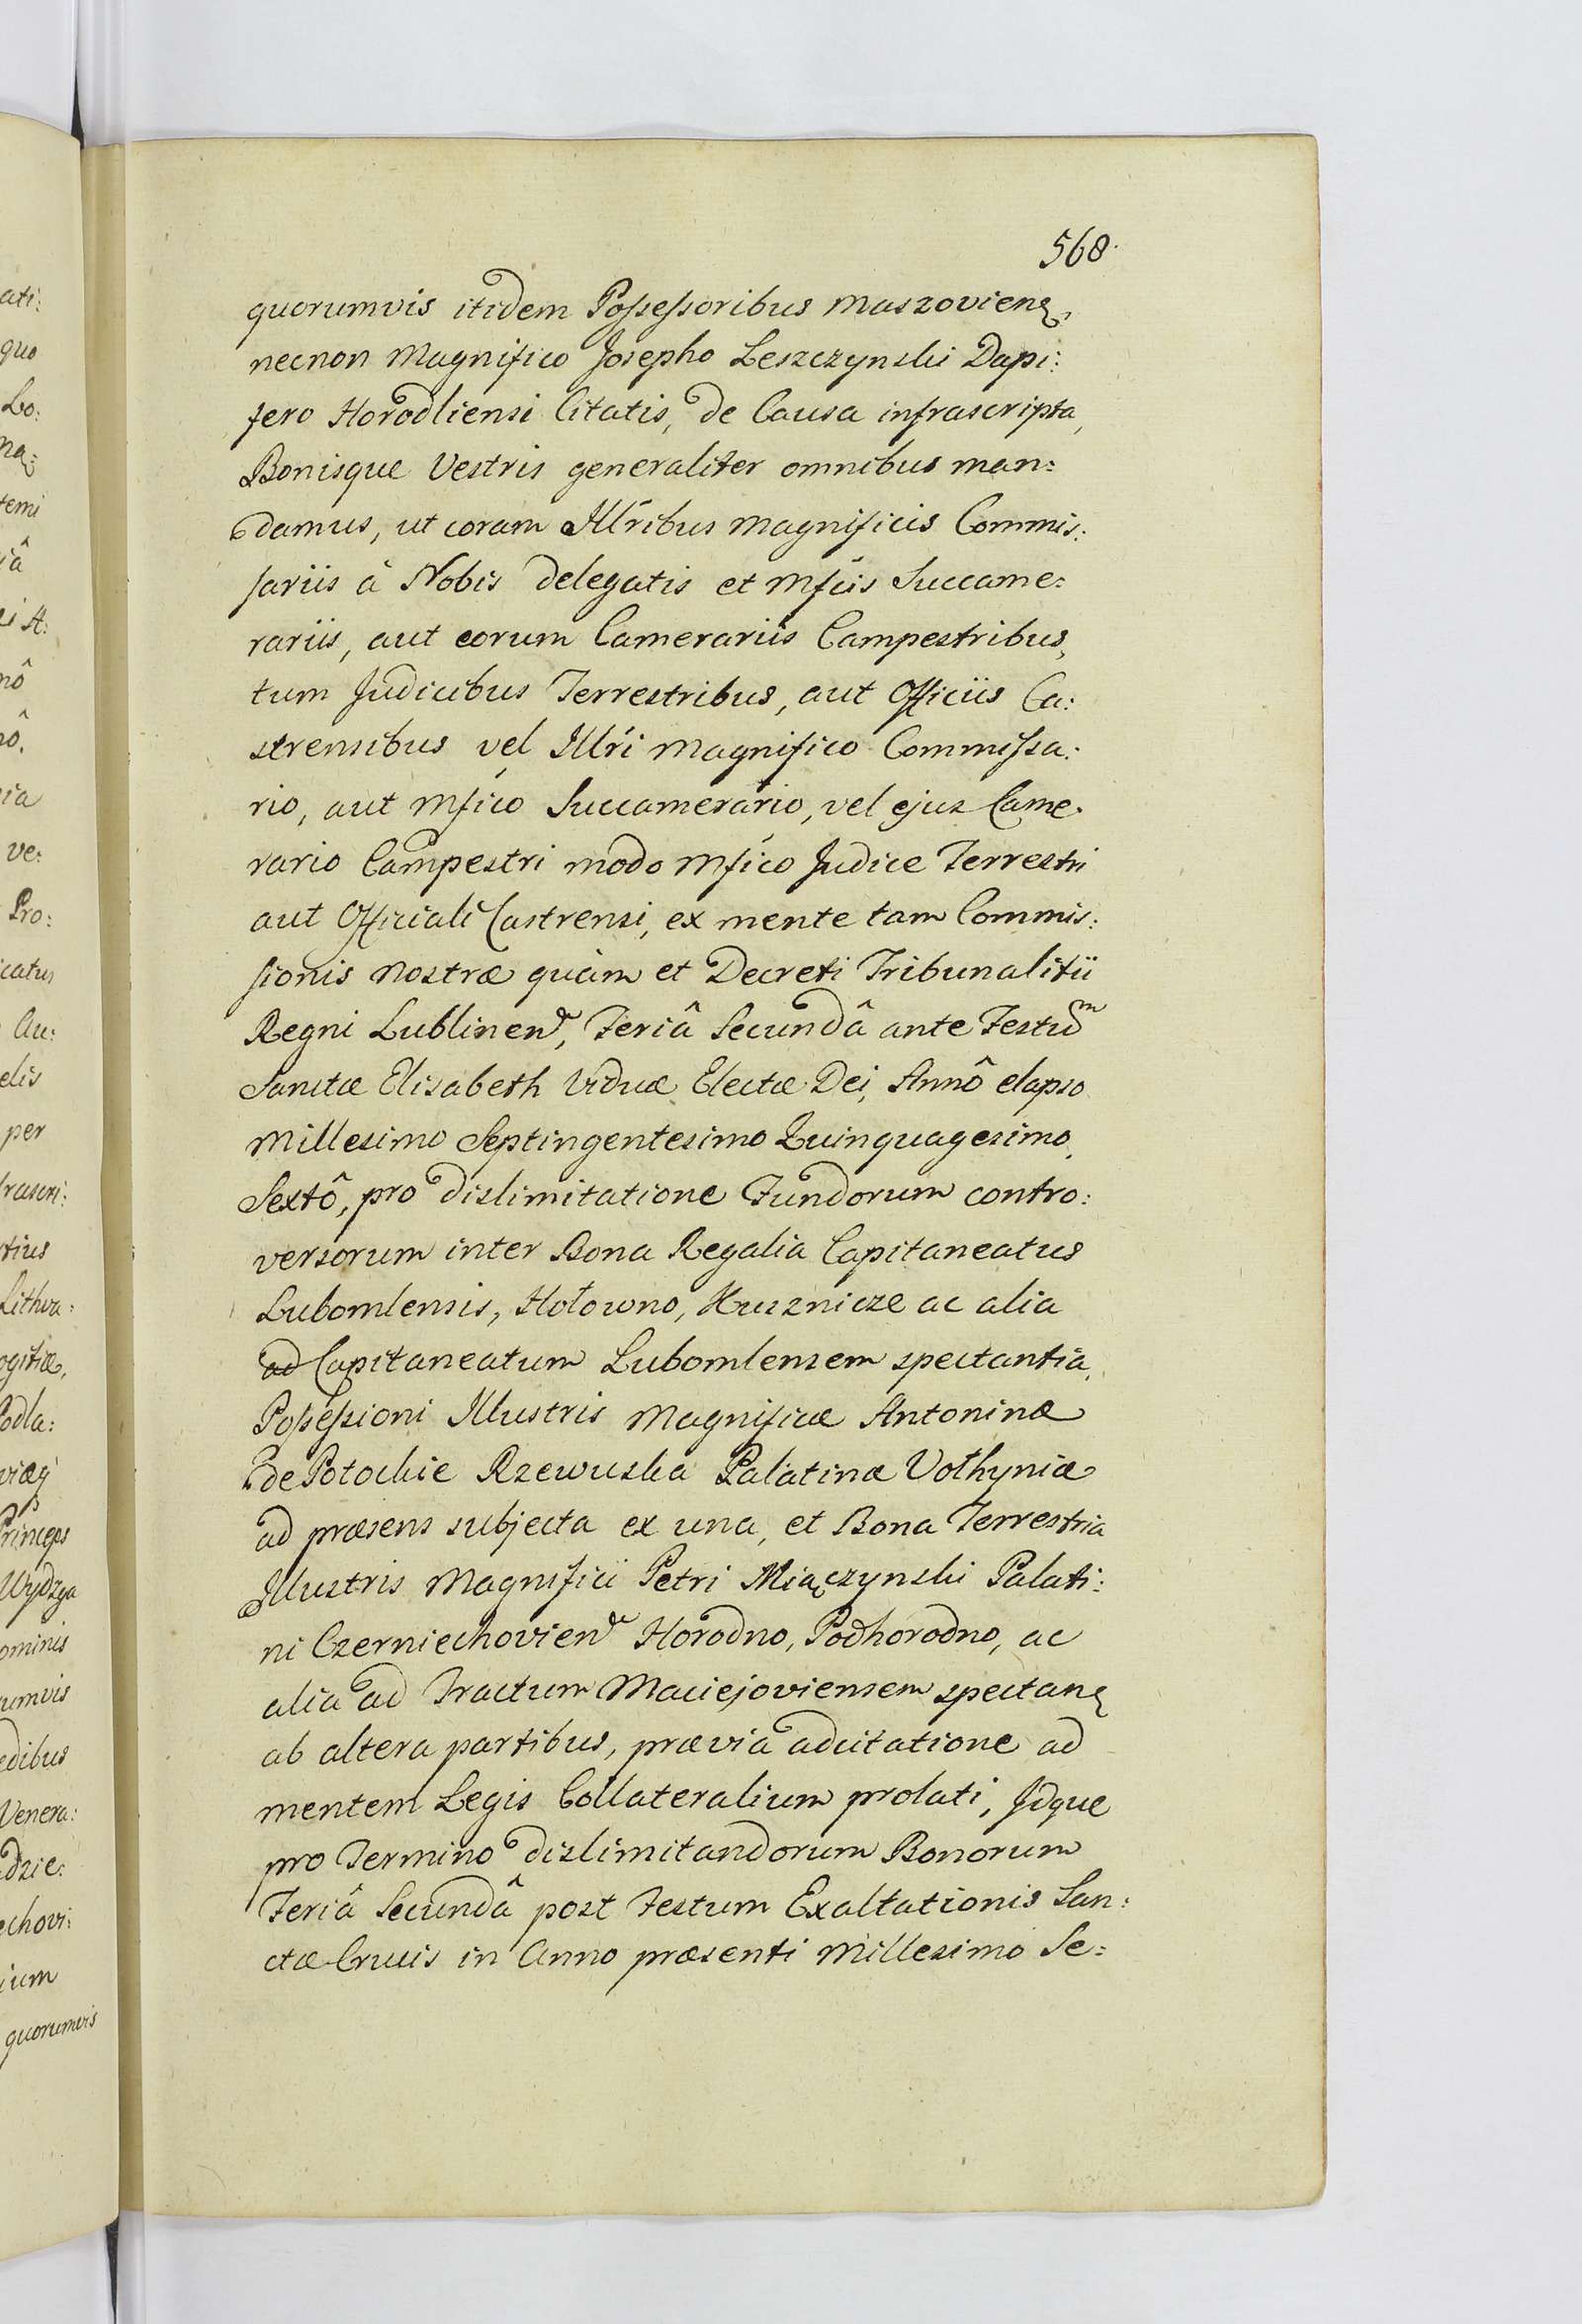 568.
quorumvis itidem Poſseſsoribus Maszovienẽ,
necnon Magnifico Josepho Leszczynski Dapi:
fero Horodliensi Citatis, de Causa infrascripta,
Bonisque Vestris generaliter omnibus man:
damus, ut coram Illribus Magnificis Commis:
sariis à Nobis delegatis et Mfcis Succame:
rariis, aut eorum Camerariis Campestribus,
tum Judicibus Terrestribus, aut Officiis Ca:
strensibus vel Illri Magnifico Commiſsa:
rio, aut Mfico Succamerario, vel ejus Came:
rario Campestri modo Mfico Judice Terrestri
aut Officiali Castrensi, ex mente tam Commis:
sionis nostræ quàm et Decreti Tribunalitii
Regni Lublinen, Feriâ Secundâ ante Festum
Sanctæ Elisabeth Viduæ Electæ Dei, Annô elapso
Millesimo Septingentesimo Quinquagesimo
Sextô, pro dislimitatione Fundorum contro:
versorum inter Bona Regalia Capitaneatus
Lubomlensis, Hołowno, Husznicze ac alia
ad Capitaneatum Lubomlensem spectantia,
Poſseſsioni Illustris Magnificæ Antoninæ
de Potockie Rzewuska Palatinæ Vołhyniæ
ad præsens subjecta ex una, et Bona Terrestria
Illustris Magnifici Petri Miączynski Palati:
ni Czerniechovien Horodno, Podhorodno, ac
alia ad Tractum Maciejoviensem spectan
ab altera partibus, prævia adcitatione ad
mentem Legis Collateralium prolati, Idque
pro Termino dislimitandorum Bonorum
Feriâ Secundâ post Festum Exaltationis San:
ctæ Crucis in Anno præsenti Millesimo Se:
ati:
quo
Lo:
temi
iâ
nô
nô.
ia
ve:
Pro:
icatus
Au:
elis
per
frascri:
tius
Lithva:
ogitiæ,
Podla:
Princeps
Wydzga
ominis
umvis
edibus
Venera:
dzie:
echovi:
ium
quorumvis